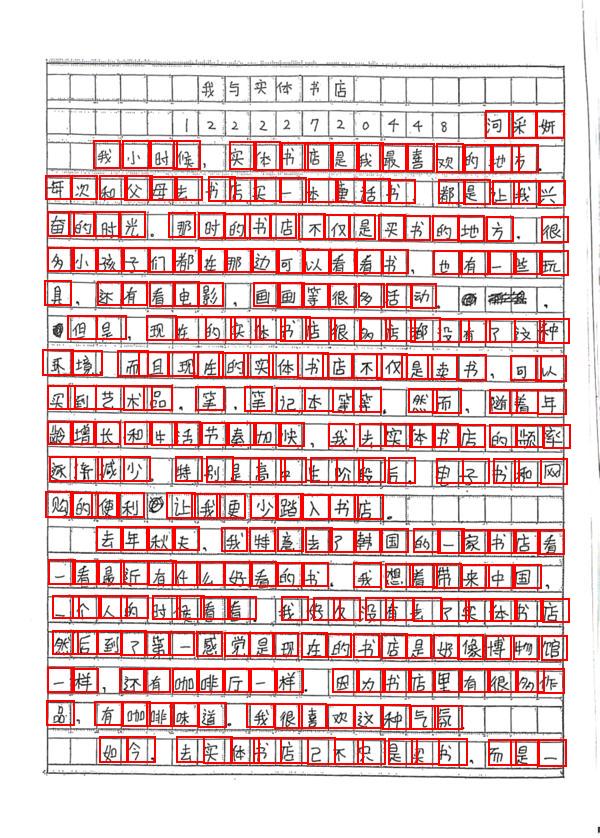 我与实体书店
12222720448 河采妍
我小时候，实体书店是我最喜欢的地方。
每次和父母去书店买一本童话书，都是让我兴
奋的时光。那时的书店不仅是买书的地方，很
多小孩子们都在那边可以看看书，也有一些玩
具，还有看电影，画画等很多活动。
但是，现在的实体书店很多店都没有了这种
环境。而且现在的实体书店不仅是卖书，可以
买到艺术品，笔，笔记本等等。然而，随着年
龄增长和生活节奏加快，我去实体书店的频率
逐渐减少。特别是高中生阶段后。电子书和网
购的便利让我更少踏入书店。
去年秋天，我特意去了韩国的一家书店看
一看最近有什么好看的书。我想着带来中国，
一个人的时候看看。我好久没有去了实体书店
然后到了第一感觉是现在的书店是好像博物馆
一样，还有咖啡厅一样。因为书店里有很多作
品，有咖啡味道。我很喜欢这种气氛
如今，去实体书店已不只是买书，而是一